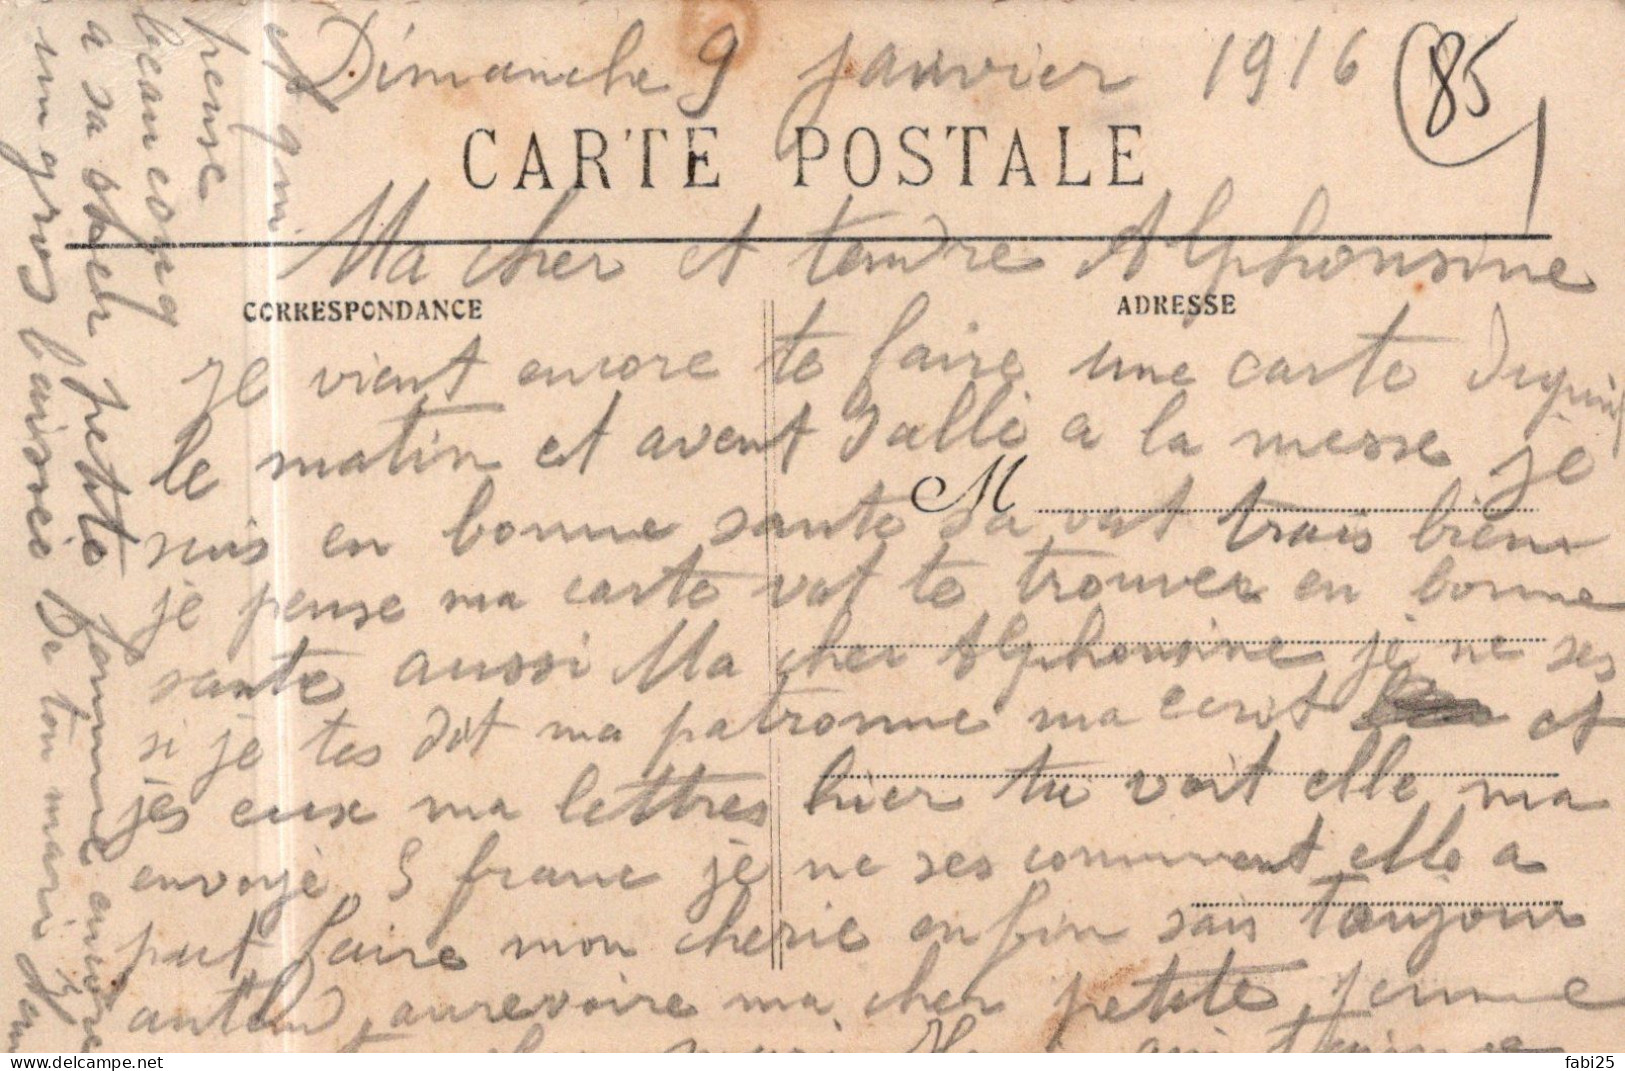 Dimanche 9 janvier 1916
85
CARTE POSTALE
Ma cher et tendre Alphonsine
CORRESPONDANCE
ADRESSE
Je vient encore te faire une carte
le matin et avent dallé a la messe je
M
suis en bonne sante sa vat trais bien
je pense ma carte vat te trouver en bonne
sante aussi Ma cher Alphonsine je ne ses
si je tes dit ma patronne ma ecrit et
jes eux ma lettres hier tu voit elle ma
envoye 5 franc je ne ses comment elle a
put faire mon cherie enfin sais toujour
autan aurevoire ma cher petite femme
et qui
pense
beaucoup
a sa cher petite femme encore
un gros baissee de ton mari
fabi25